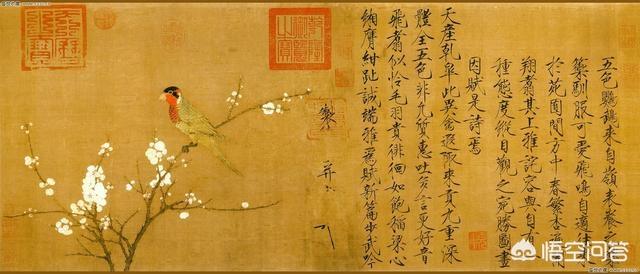 五色鸚鵡來自嶺表養之禁
籞馴服可愛飛鳴自適往來
於苑囿間方中春繁杏遍開
翔翥其上雅詫容與自有一
種態度縱目觀之宛勝圖畫
因賦是詩焉
天產乾皋此異禽遐陬來貢九重深
體全五色非凡質惠吐多言更好音
飛翥似憐毛羽貴徘徊如飽稻粱心
緗膺紺趾誠端雅為賦新篇步武吟
製
并
悟空问答